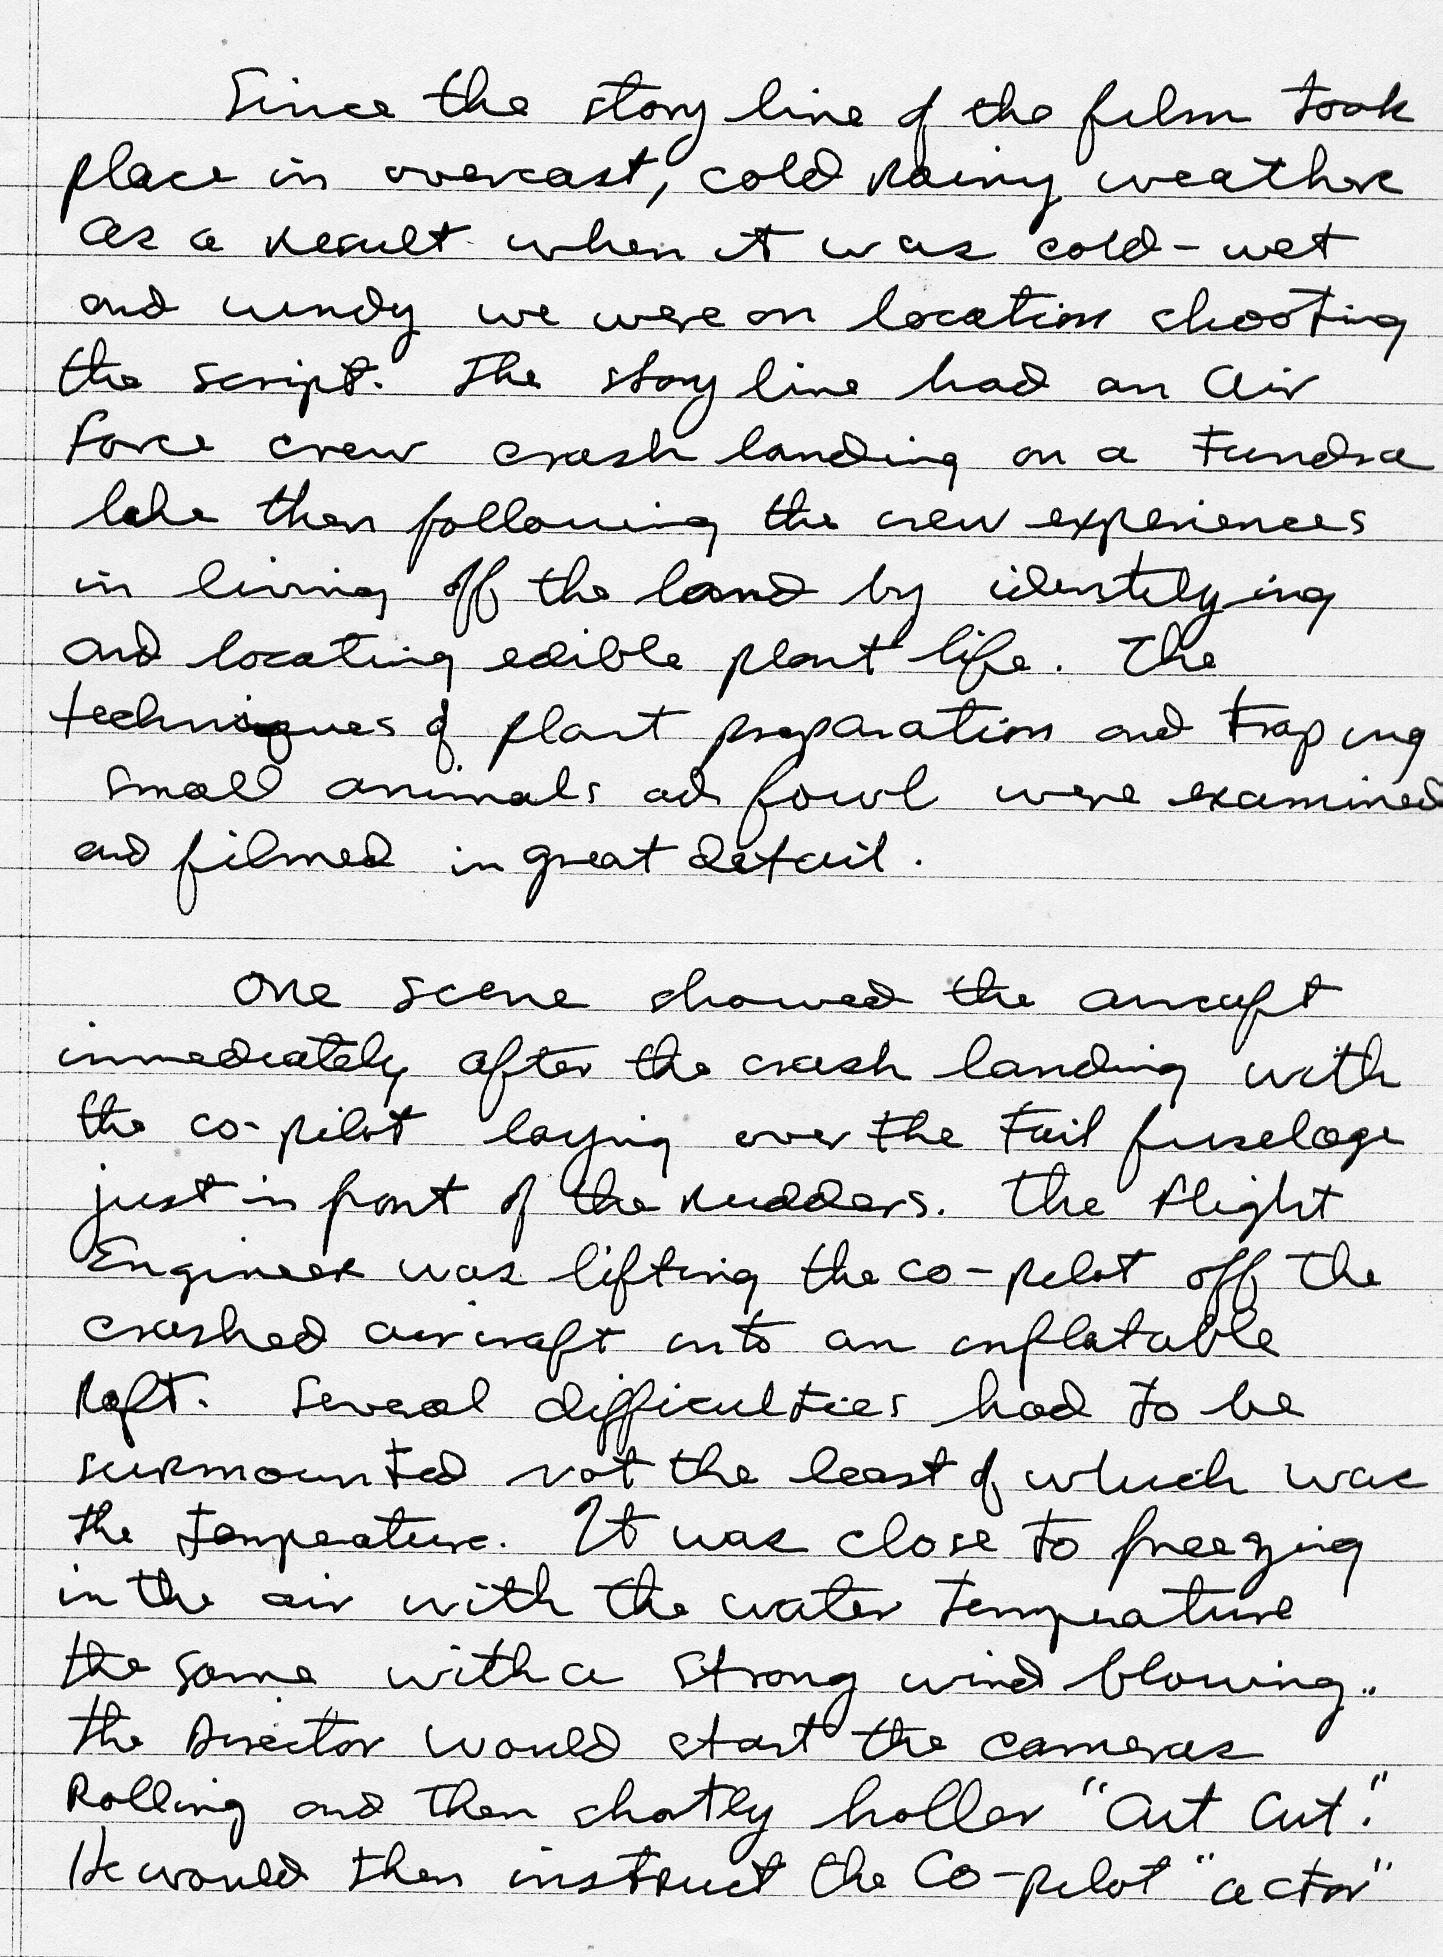 Since the story line of the film took
place in overcast, cold rainy weather
as a result when it was cold-wet
and windy we were on location shooting
the script. The story line had an Air
Force crew crash landing on a Tundra
lake then following the crew experiences
in living off the land by identifying
and locating edible plant life. The
techniques of plant preparation and traping
small animals ad fowl were examined
and filmed in great detail.
One scene showed the aircraft
immediately after the crash landing with
the co-pilot laying over the tail fuselage
just in front of the rudders. The Flight
Engineer was lifting the co-pilot off the
crashed aircraft into an inflatable
Raft. Several difficulties had to be
surmounted not the least of which was
the temperature. It was close to freezing
in the air with the water temperature
the same with a strong wind blowing..
the Director would start the cameras
Rolling and then shortly holler "Cut Cut."
He would then instruct the Co-pilot "actor"